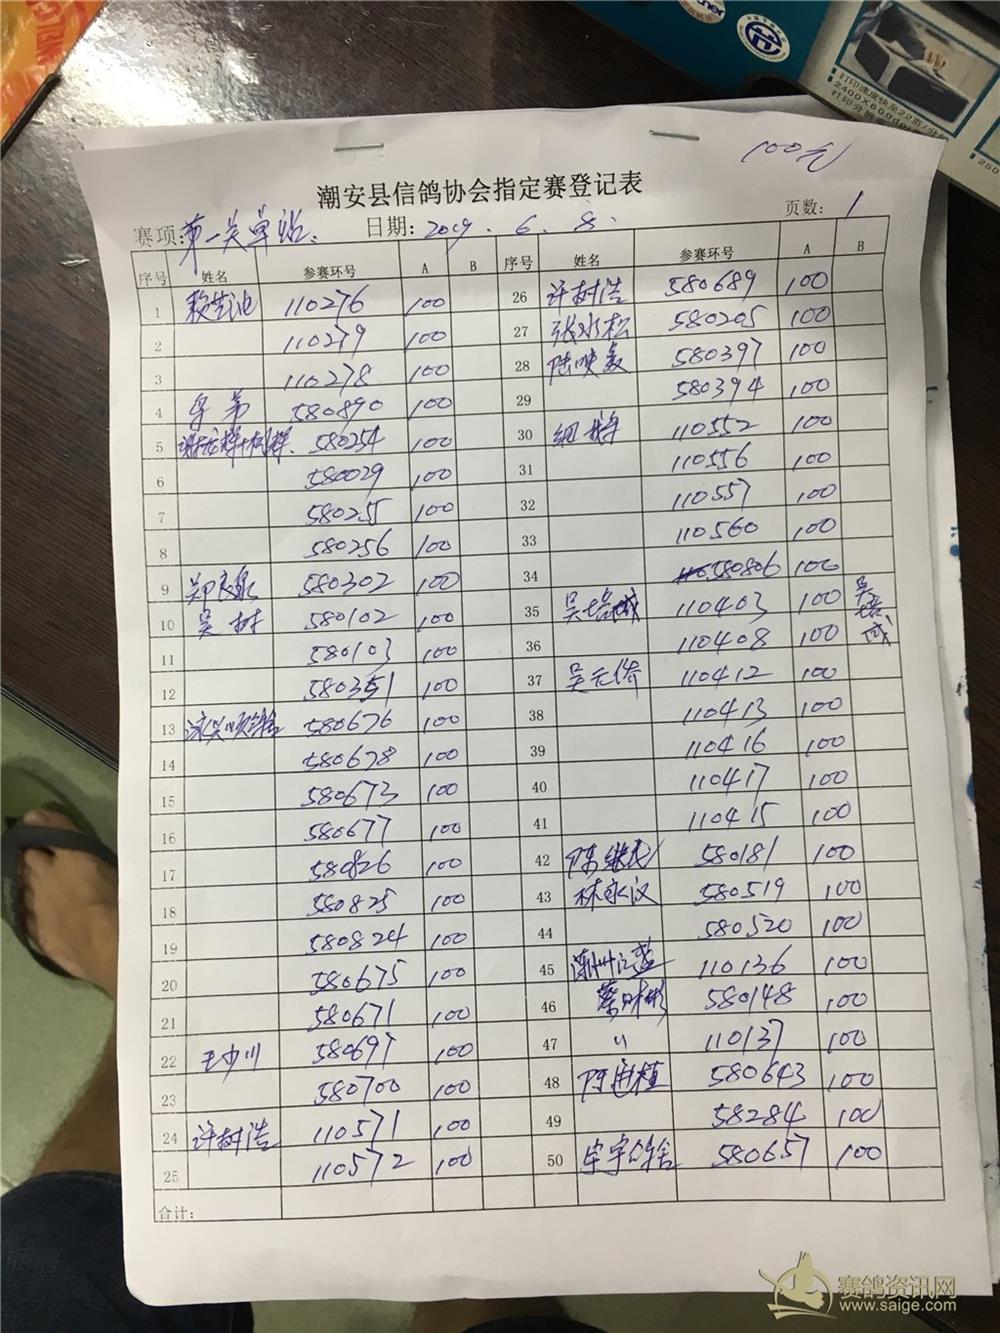 100元
潮安县信鸽协会指定赛登记表
赛项: 第一关单站. 日期: 2019. 6. 8. 页数: 1
序号 姓名 参赛环号 A B 序号 姓名 参赛环号 A B
1 110276 100 26 许树浩 580689 100
2 110279 100 27 张水松 580205 100
3 110278 100 28 陆映 580397 100
4 580890 100 29 580394 100
5 580254 100 30 细 110552 100
6 580029 100 31 110556 100
7 580255 100 32 110557 100
8 580256 100 33 110560 100
9 郑良泉 580302 100 34 580806 100
10 吴树 580102 100 35 吴培城 110403 100 吴培城
11 580103 100 36 110408 100
12 580351 100 37 吴元侨 110412 100
13 580676 100 38 110413 100
14 580678 100 39 110416 100
15 580673 100 40 110417 100
16 580677 100 41 110415 100
17 580826 100 42 陈继 580181 100
18 580825 100 43 林永汉 580519 100
19 580824 100 44 580520 100
20 580675 100 45 潮州 110136 100
21 580671 100 46 蔡 580148 100
22 王少川 580697 100 47 〃 110137 100
23 580700 100 48 580643 100
24 许树浩 110571 100 49 58284 100
25 110572 100 50 宇 580657 100
合计:
打印速度快至22页/分钟
2400X600dpi
打印分辨
250
赛鸽资讯网
www.saige.com